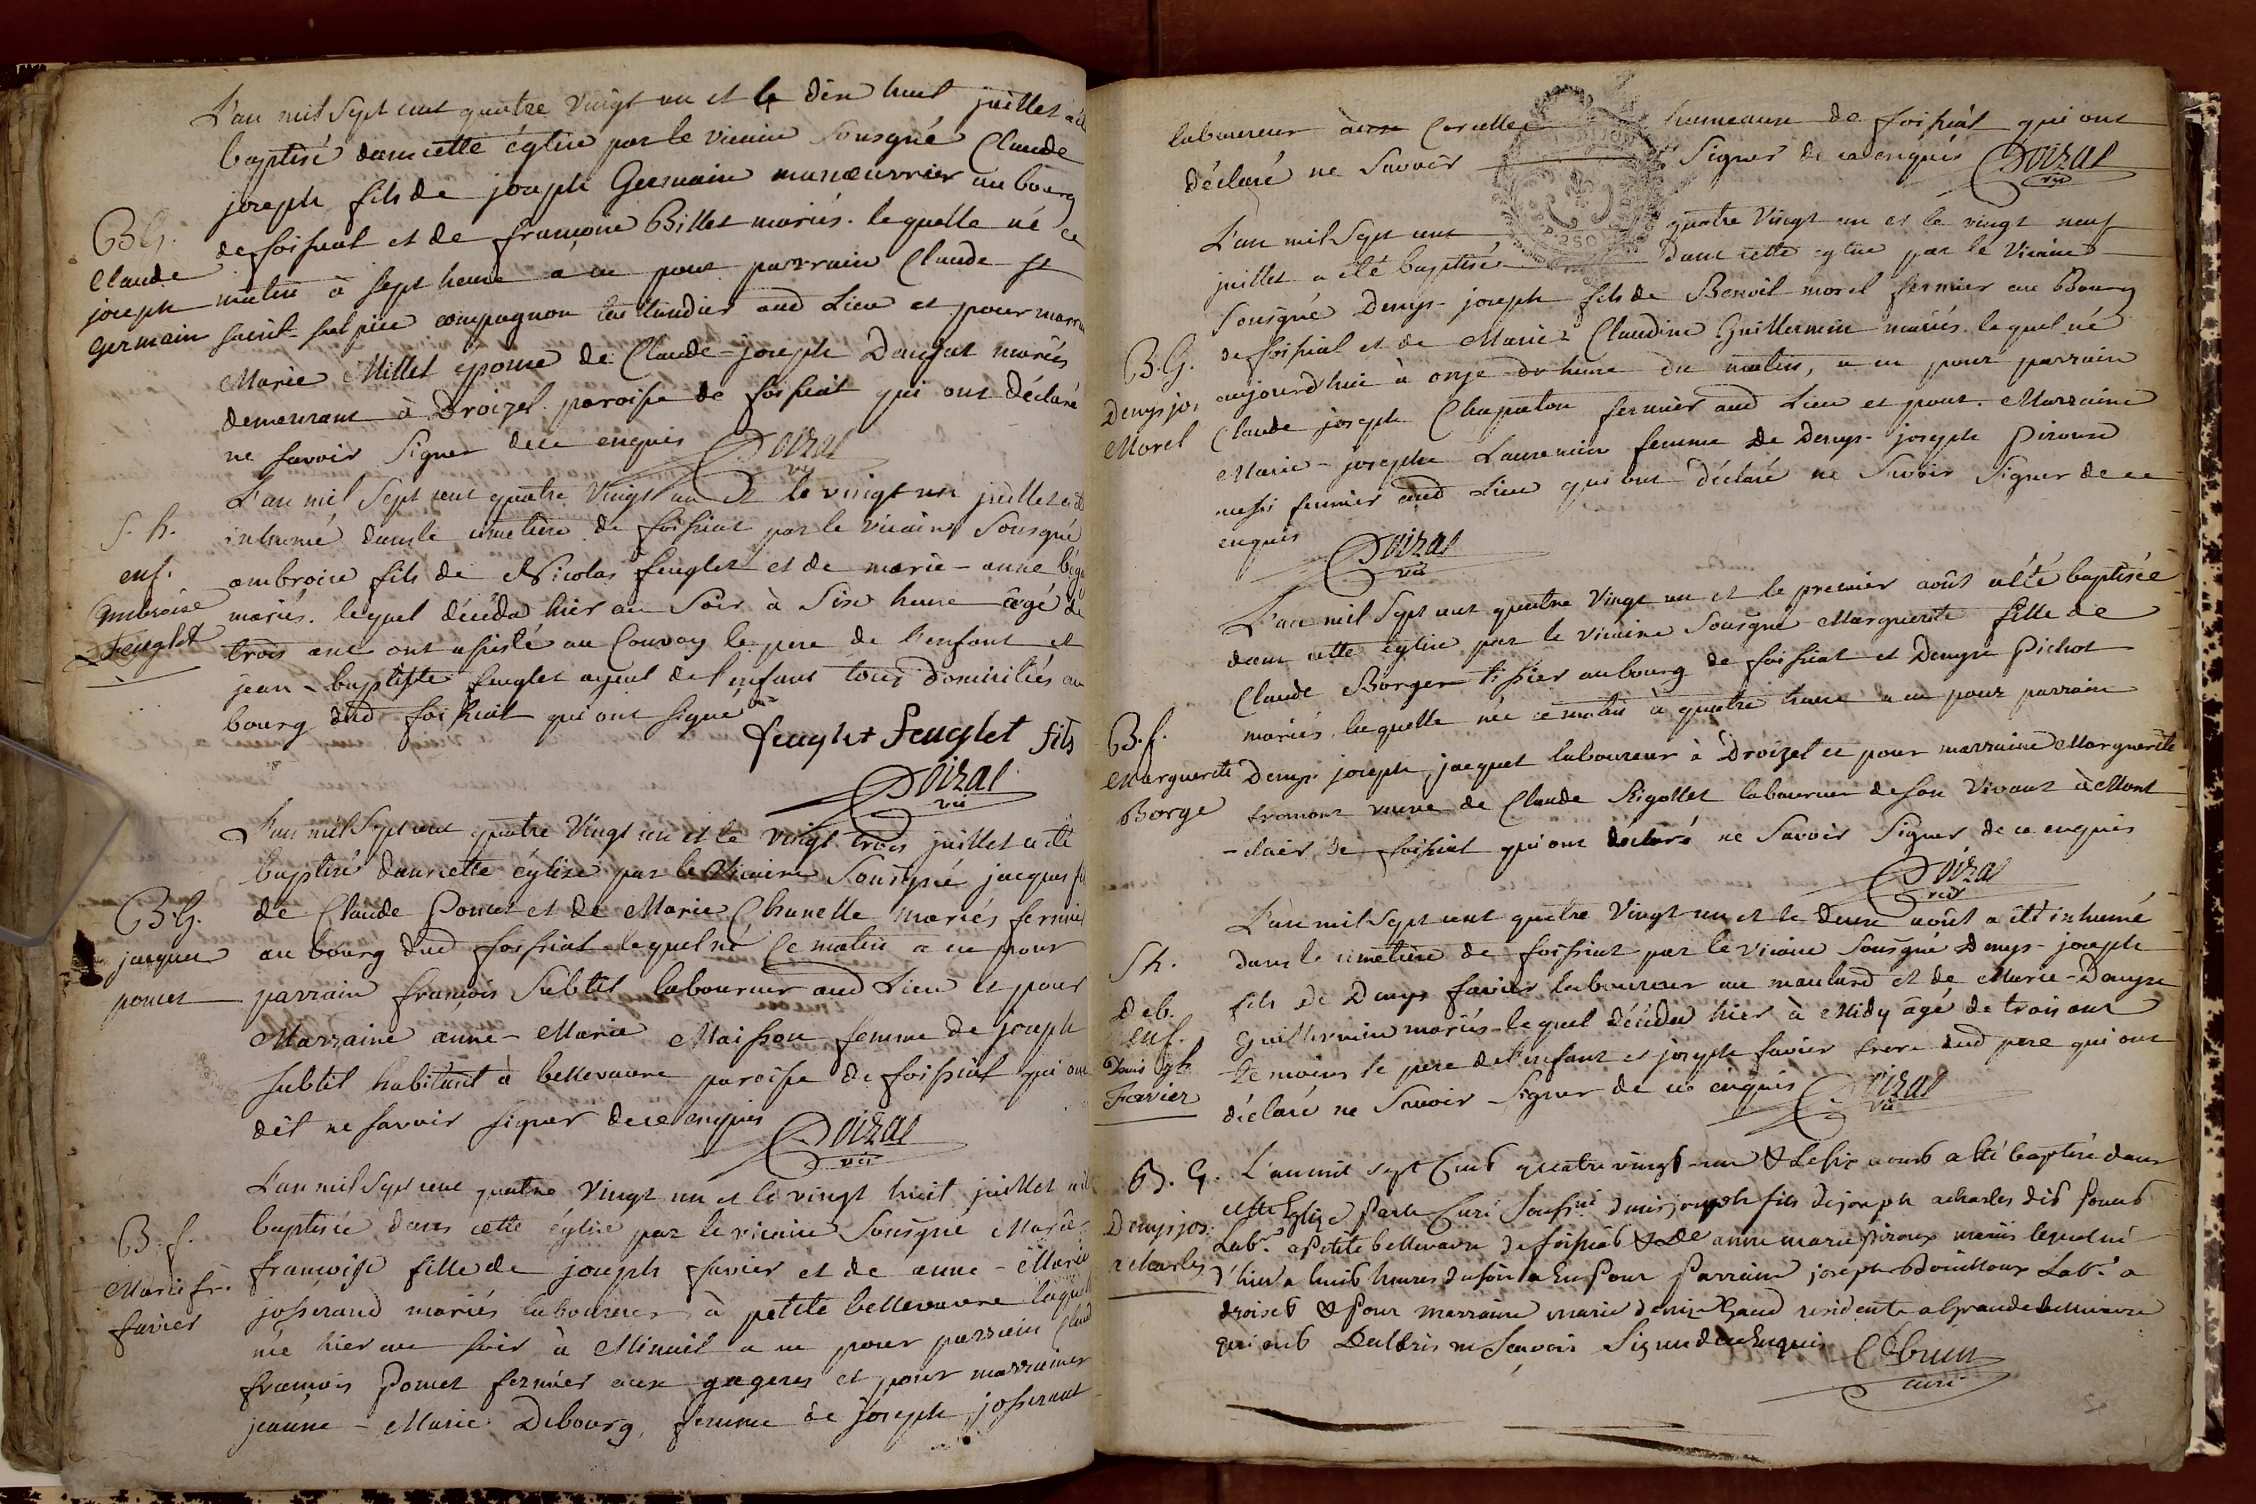 L'an mil sept cent quatre vingt un et le dix huit juillet a été
baptisé dans cette église par le vicaire sousigné Claude
joseph fils de joseph Germain manœuvrier au bourg
B.G. de foissiat et de françoise Billet mariés. lequelle né ce
Claude
joseph matin à sept heure a eu pour parrain Claude
germain saint-sulpice compagnon aud Lieu et pour marraine
Marie Millet epouse de Claude-joseph Daujat mariés
demeurant à Droizel paroisse de foissiat qui ont déclaré
ne savoir signer de ce enquis Doizat
vic
L'an mil sept cent quatre vingt un et le vingt un juillet a été
S. h. inhumé dans le cimetière de foissiat par le vicaire sousigné
enf. ambroise fils de Nicolas feuglet et de marie-anne
Ambroise mariés. lequel décéda hier au soir à six heure âgé de
Feuglet trois ans ont assisté au Convoy le pere de l'enfant et
jean-baptiste feuglet ayeul de l'enfant tous domiciliés au
bourg dud foissiat qui ont signé
feuglet Feuglet fils
Doizat
vic
L'an mil sept cent quatre vingt un et le vingt trois juillet a été
baptisé dans cette église par le Vicaire sousigné jacques
B.G. de Claude Poncet et de Marie Chanelle mariés fermier
jacques au bourg dud foissiat lequel né ce matin a eu pour
poncet parrain françois Subtil laboureur aud Lieu et pour
Marraine anne-Marie Maisson femme de joseph
subtil habitant à bellevavre paroisse de foissiat qui ont
dit ne savoir signer de ce enquis Doizat
vic
L'an mil sept cent quatre vingt un et le vingt huit juillet a été
B.f. baptisée dans cette église par le vicaire sousigné Marie
Marie fr. françoise fille de joseph favier et de anne-Marie
favier josserand mariés laboureur à petite bellevavre laquelle
née hier au soir à Minuit a eu pour parrain Claude
françois Poncet fermier aux gageres et pour marraine
jeanne-Marie Debourg, femme de joseph josserand
laboureur Corcelle hameaux de foissiat qui ont
déclaré ne savoir signer de ce enquis Doizat
vic
L'an mil sept cent quatre vingt un et le vingt neuf
juillet a été baptisé dans cette église par le vicaire
sousigné Denys-joseph fils de Benoit morel fermier au Bourg
B.G. de foissiat et de Marie Claudine Guillermin mariés lequel né
Denys jos. aujourd'hui à onze heure du matin, a eu pour parrain
Morel Claude joseph Chapaton fermier aud Lieu et pour Marraine
Marie-josephe femme de Denys-joseph Piroux
aussi fermier aud Lieu qui ont déclaré ne savoir signer de ce
enquis Doizat
vic
L'an mil sept cent quatre vingt un et le premier août a été baptisée
dans cette église par le vicaire sousigné Marguerite fille de
Claude Borge tissier au bourg de foissiat et Denyse Pichot
B.f. mariés, laquelle née ce matin à quatre heure a eu pour parrain
Marguerite Denys joseph jacquet laboureur à Droizel et pour marraine Marguerite
Borge fromont veuve de Claude Rigollet laboureur de son vivant à Mont
-clair de foissiat qui ont déclaré ne savoir signer de ce enquis
Doizat
vic
L'an mil sept cent quatre vingt un et le deux août a été inhumé
S h. dans le cimetière de foissiat par le vicaire sousigné Denys-joseph
Deb. fils de Denys favier laboureur au maulard et de Marie-Denyse
enf. Guillermin mariés lequel décéda hier à Midy âgé de trois ans
Denis jph témoins le pere de l'enfant et joseph favier frere dud pere qui ont
Favier déclaré ne savoir signer de ce enquis Doizat
vic
B. G. L'an mil sept Cent quatre vingt-un & Le six aout a été baptisé dans
cette Eglize par le Curé Soussigné denis joseph fils de joseph acharles dit
Denys jos. Lab.r a Petite bellevavre de foissiat & de anne marie piroux mariés lequel né
acharles d'hier a huit heures du soir a Eu Pour Parrain joseph Lab.r a
droiset & Pour marraine marie denize residente a Grande bellevavre
qui ont ne Scavoir Signer de ce Enquis
curé